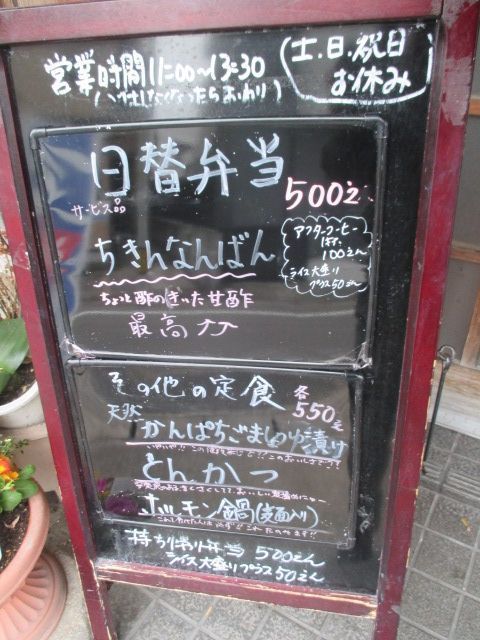 営業時間 11:00〜13:30
(土.日.祝日
お休み)
日替弁当
500ゑ
サービス品
ちきんなんばん
アフターコーヒー
100えん
ライス大盛り
プラス50えん
ちょっと酢のきいた甘酢
最高
その他の定食
各550ゑ
天然
かんぱちごましょうゆ漬け
とんかつ
ホルモン鍋(麦麺入り)
持ち帰り弁当 500えん
ライス大盛りプラス50えん